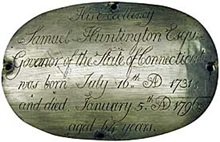 His Excellency
Samuel Huntington Esqr
Govenor of the State of Connecticut
was born July 16th AD 1731
and died January 5th AD 1796
aged 64 years.